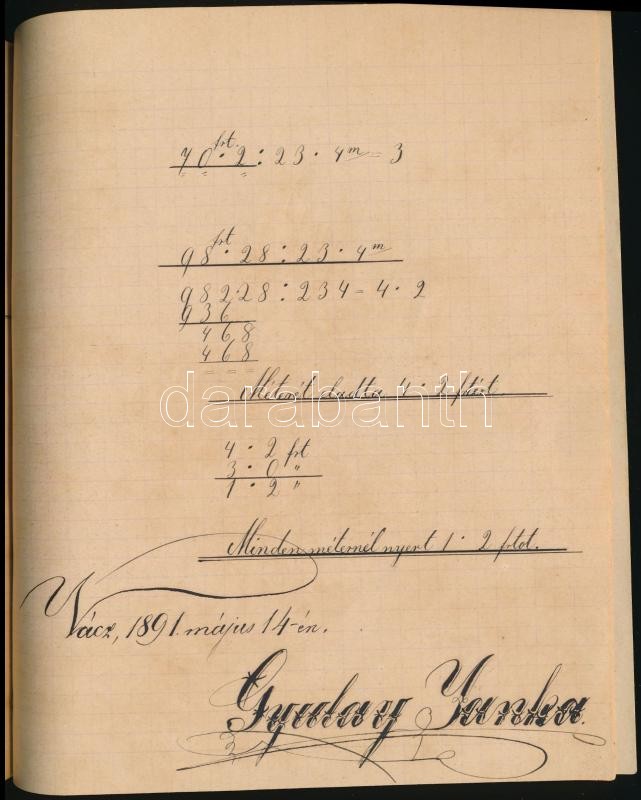 70 frt. 2 : 23 · 4 m = 3
98 frt · 28 : 23 · 4 m
98228 : 234 = 4 · 2
936
468
468
Méterét eladta 4 · 2 frtért
4 · 2 frt
3 · 0 "
1 · 2 "
Minden méternél nyert 1 · 2 frtot.
Vácz, 1891. május 14-én.
Gyulay Janka.
darabanth